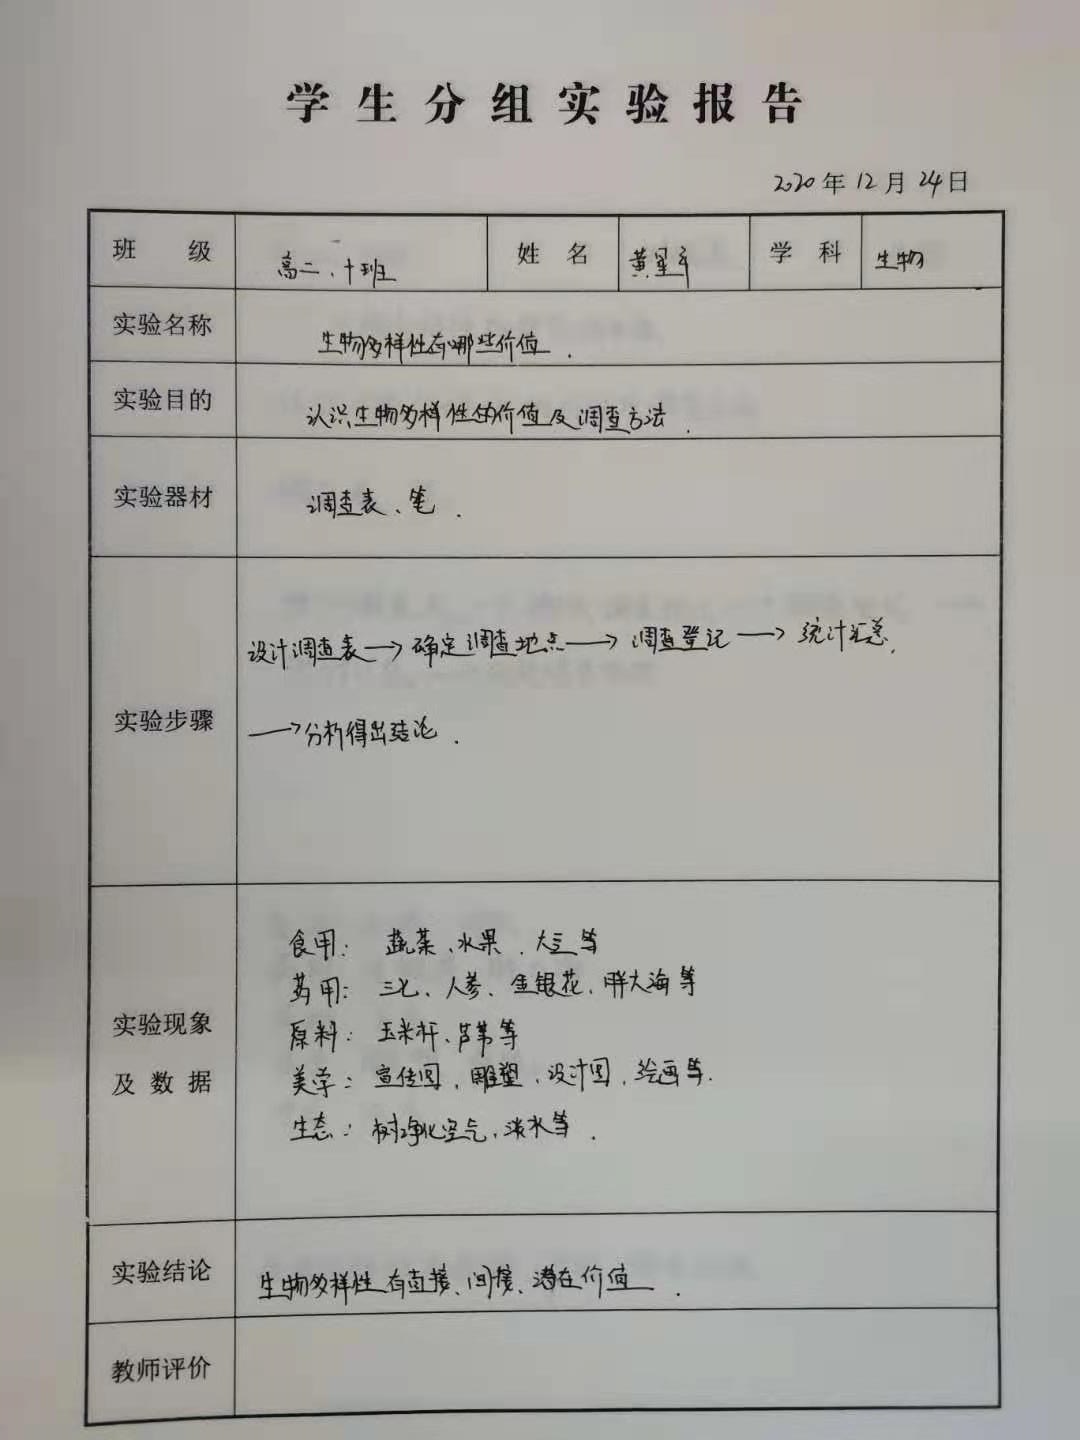 学生分组实验报告
2020年12月24日
班 级 高二、十班 姓 名 黄星 学 科 生物
实验名称 生物多样性有哪些价值.
实验目的 认识生物多样性的价值及调查方法.
实验器材 调查表、笔.
实验步骤
设计调查表→确定调查地点→调查登记→统计汇总,
→分析得出结论.
实验现象
及数据
食用: 蔬菜、水果、大豆等
药用: 三七、人参、金银花、胖大海等
原料: 玉米杆、芦苇等
美学: 宣传图、雕塑、设计图、绘画等.
生态: 树净化空气、淡水等.
实验结论 生物多样性有直接、间接、潜在价值.
教师评价